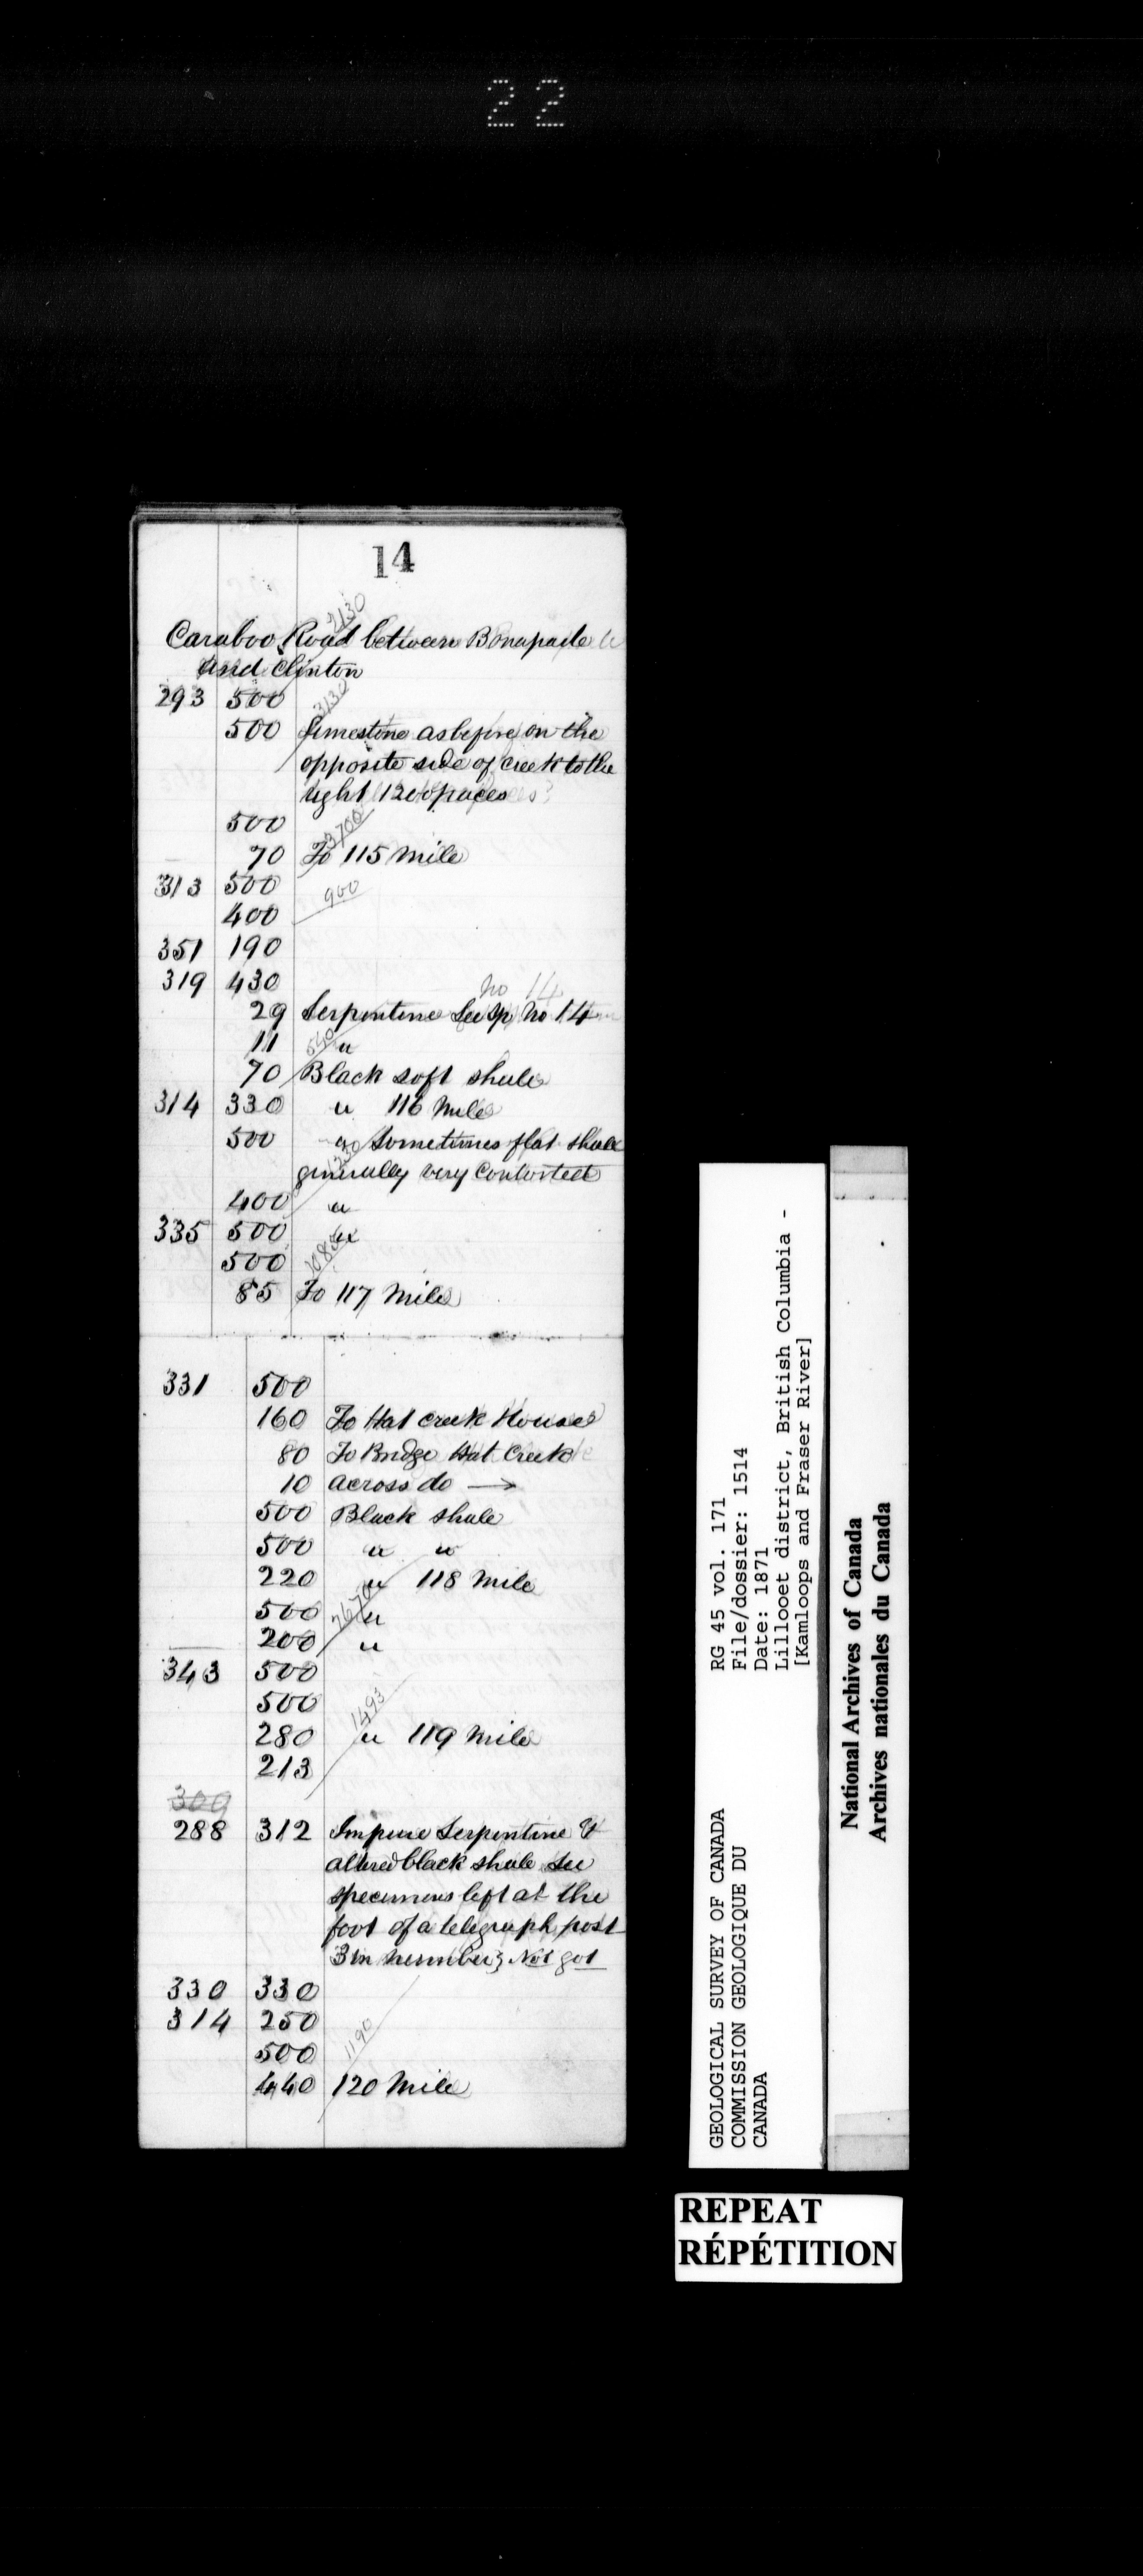 22
14
2130
Caraboo Road between Bonaparte
and Clinton
3130
293 500
500 Limestone as before on the
opposite side of creek to the
right 1200 paces
500
3700
70 To 115 Mile
313 500
900
400
351 190
319 430
No 14
29 Serpentine See Sp No 14
11 " 540
70 Black soft shale
314 330 " 116 Mile
500 " Sometimes flat shale
1230
generally very Contorted
400 "
335 500 "
500 1085
85 To 117 Mile
331 500
160 To Hat Creek House
80 To Bridge Hat Creek
10 across do →
500 Black shale
500 " "
220 " 118 Mile
500 " 2670
200 "
343 500
500 1493
280 " 119 Mile
213
309
288 312 Impure Serpentine &
altered black shale see
specimens left at the
foot of a telegraph post
3 in number; Not got
330 330
314 250
500 1190
440 120 Mile
GEOLOGICAL SURVEY OF CANADA
COMMISSION GEOLOGIQUE DU
CANADA
RG 45 vol. 171
File/dossier: 1514
Date: 1871
Lillooet district, British Columbia -
[Kamloops and Fraser River]
National Archives of Canada
Archives nationales du Canada
REPEAT
RÉPÉTITION